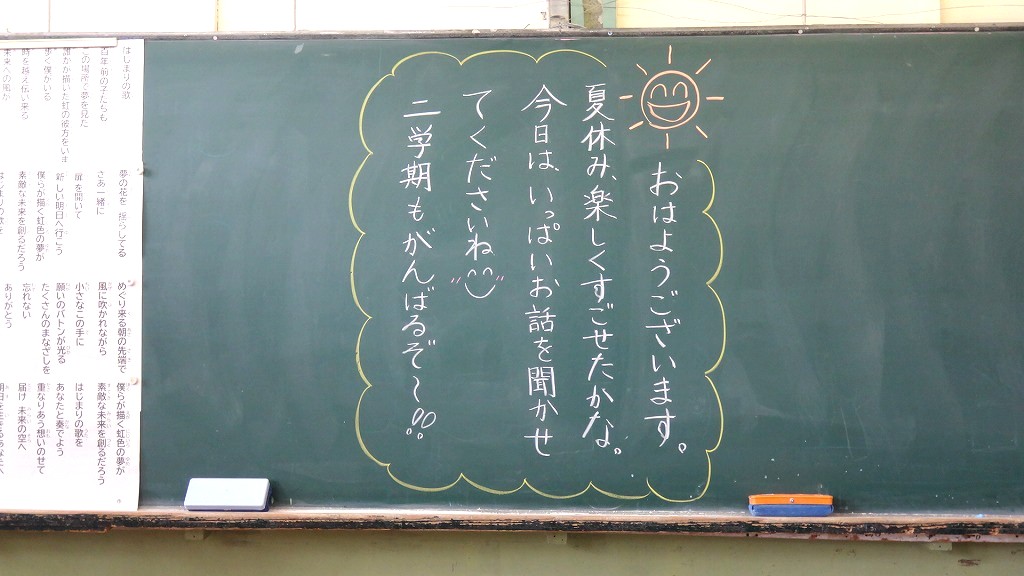 おはようございます。
夏休み、楽しくすごせたかな。
今日は、いっぱいお話を聞かせ
てくださいね
二学期もがんばるぞ〜!!
はじまりの歌
百年前の子たちも
この場所で夢を見た
誰かが描いた虹の彼方をいま
歩く僕がいる
時を越え伝い来る
未来への風が
夢の花を 揺らしてる
さあ一緒に
扉を開いて
新しい明日へ行こう
僕らが描く虹色の夢が
素敵な未来を創るだろう
はじまりの歌を
めぐり来る朝の先端で
風に吹かれながら
小さなこの手に
願いのバトンが光る
たくさんのまなざしを
忘れない
ありがとう
僕らが描く虹色の夢が
素敵な未来を創るだろう
はじまりの歌を
あなたと奏でよう
重なりあう想いのせて
届け 未来の空へ
明日を生きるあなたへ